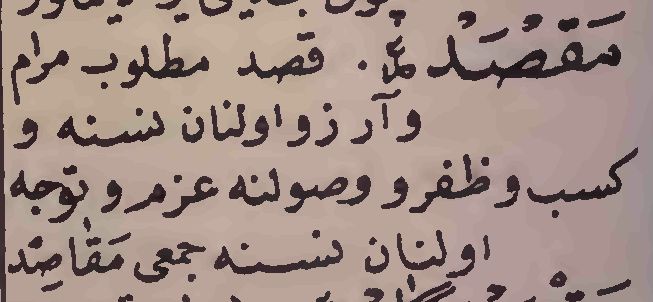 مَقْصَدْ ع. قصد مطلوب مرام
وآرزو اولنان نسنه و
كسب وظفر و وصولنه عزم و توجه
اولنان نسنه جمعى مَقَاصِدْ